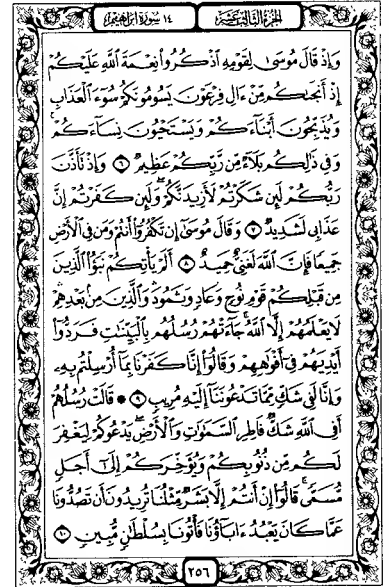 الجزء الثالث عشر
١٤ سورة إبراهيم
وَإِذْ قَالَ مُوسَىٰ لِقَوْمِهِ ٱذْكُرُوا۟ نِعْمَةَ ٱللَّهِ عَلَيْكُمْ
إِذْ أَنجَىٰكُم مِّنْ ءَالِ فِرْعَوْنَ يَسُومُونَكُمْ سُوٓءَ ٱلْعَذَابِ
وَيُذَبِّحُونَ أَبْنَآءَكُمْ وَيَسْتَحْيُونَ نِسَآءَكُمْ ۚ
وَفِى ذَٰلِكُم بَلَآءٌ مِّن رَّبِّكُمْ عَظِيمٌ ٦ وَإِذْ تَأَذَّنَ
رَبُّكُمْ لَئِن شَكَرْتُمْ لَأَزِيدَنَّكُمْ ۖ وَلَئِن كَفَرْتُمْ إِنَّ
عَذَابِى لَشَدِيدٌ ٧ وَقَالَ مُوسَىٰٓ إِن تَكْفُرُوٓا۟ أَنتُمْ وَمَن فِى ٱلْأَرْضِ
جَمِيعًا فَإِنَّ ٱللَّهَ لَغَنِىٌّ حَمِيدٌ ٨ أَلَمْ يَأْتِكُمْ نَبَؤُا۟ ٱلَّذِينَ
مِن قَبْلِكُمْ قَوْمِ نُوحٍ وَعَادٍ وَثَمُودَ ۛ وَٱلَّذِينَ مِنۢ بَعْدِهِمْ ۛ
لَا يَعْلَمُهُمْ إِلَّا ٱللَّهُ ۚ جَآءَتْهُمْ رُسُلُهُم بِٱلْبَيِّنَٰتِ فَرَدُّوٓا۟
أَيْدِيَهُمْ فِىٓ أَفْوَٰهِهِمْ وَقَالُوٓا۟ إِنَّا كَفَرْنَا بِمَآ أُرْسِلْتُم بِهِۦ
وَإِنَّا لَفِى شَكٍّ مِّمَّا تَدْعُونَنَآ إِلَيْهِ مُرِيبٍ ٩ ۞ قَالَتْ رُسُلُهُمْ
أَفِى ٱللَّهِ شَكٌّ فَاطِرِ ٱلسَّمَٰوَٰتِ وَٱلْأَرْضِ ۖ يَدْعُوكُمْ لِيَغْفِرَ
لَكُم مِّن ذُنُوبِكُمْ وَيُؤَخِّرَكُمْ إِلَىٰٓ أَجَلٍ
مُّسَمًّى ۚ قَالُوٓا۟ إِنْ أَنتُمْ إِلَّا بَشَرٌ مِّثْلُنَا تُرِيدُونَ أَن تَصُدُّونَا
عَمَّا كَانَ يَعْبُدُ ءَابَآؤُنَا فَأْتُونَا بِسُلْطَٰنٍ مُّبِينٍ ١٠
٢٥٦